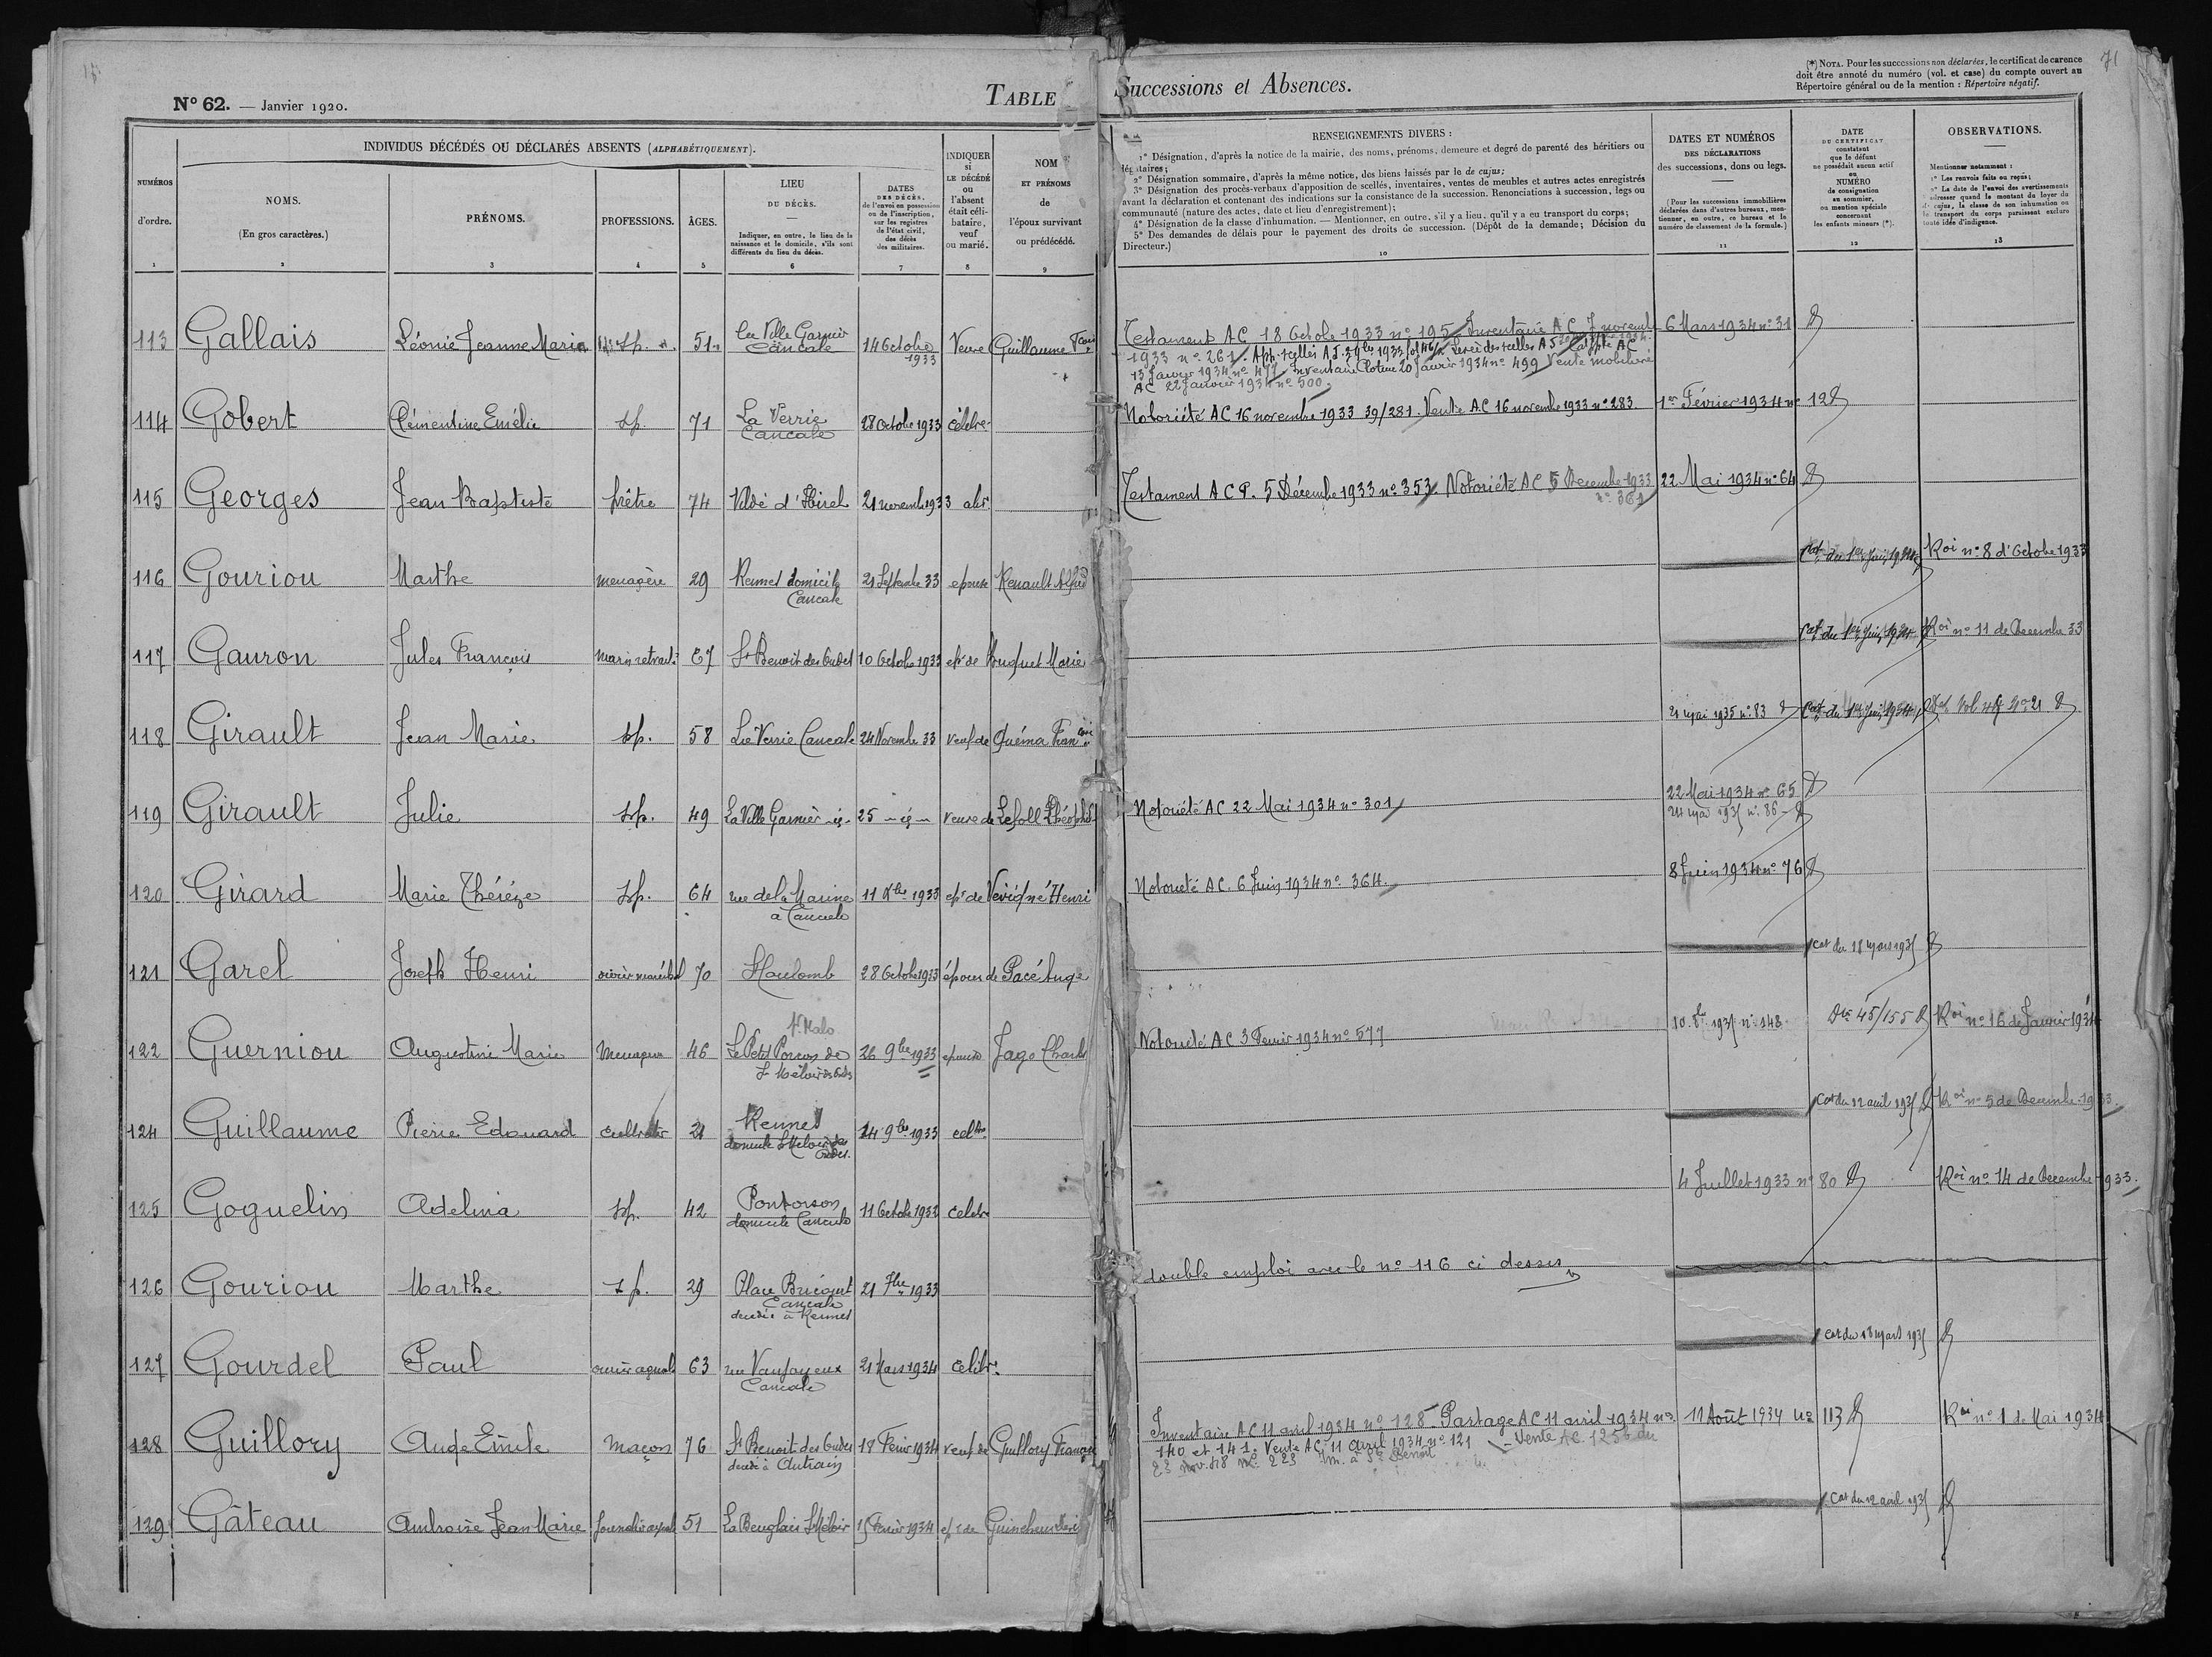 N° 62. — Janvier 1920.
TABLE
Successions et Absences.
(*) NOTA. Pour les successions non déclarées, le certificat de carence
doit être annoté du numéro (vol. et case) du compte ouvert au
Répertoire général ou de la mention : Répertoire négatif.
71
INDIVIDUS DÉCÉDÉS OU DÉCLARÉS ABSENTS (ALPHABÉTIQUEMENT).
NUMÉROS
d'ordre.
1
NOMS.
(En gros caractères.)
2
PRÉNOMS.
3
PROFESSIONS.
4
ÂGES.
5
LIEU
DU DÉCÈS.
Indiquer, en outre, le lieu de la
naissance et le domicile, s'ils sont
différents du lieu du décès.
6
DATES
DES DÉCÈS,
de l'envoi en possession
ou de l'inscription,
sur les registres
de l'état civil,
des décès
des militaires.
7
INDIQUER
si
LE DÉCÉDÉ
ou
l'absent
était céli-
bataire,
veuf
ou marié.
8
NOM
ET PRÉNOMS
de
l'époux survivant
ou prédécédé.
9
RENSEIGNEMENTS DIVERS :
1° Désignation, d'après la notice de la mairie, des noms, prénoms, demeure et degré de parenté des héritiers ou
légataires;
2° Désignation sommaire, d'après la même notice, des biens laissés par le de cujus;
3° Désignation des procès-verbaux d'apposition de scellés, inventaires, ventes de meubles et autres actes enregistrés
avant la déclaration et contenant des indications sur la consistance de la succession. Renonciations à succession, legs ou
communauté (nature des actes, date et lieu d'enregistrement);
4° Désignation de la classe d'inhumation. — Mentionner, en outre, s'il y a lieu, qu'il y a eu transport du corps;
5° Des demandes de délais pour le payement des droits de succession. (Dépôt de la demande; Décision du
Directeur.)
10
DATES ET NUMÉROS
DES DÉCLARATIONS
des successions, dons ou legs.
(Pour les successions immobilières
déclarées dans d'autres bureaux, men-
tionner, en outre, ce bureau et le
numéro de classement de la formule.)
11
DATE
DU CERTIFICAT
constatant
que le défunt
ne possédait aucun actif
ou
NUMÉRO
de consignation
au sommier,
ou mention spéciale
concernant
les enfants mineurs (*).
12
OBSERVATIONS.
Mentionner notamment :
1° Les renvois faits ou reçus;
2° La date de l'envoi des avertissements
à adresser quand le montant du loyer du
de cujus, la classe de son inhumation ou
le transport du corps paraissent exclure
toute idée d'indigence.
13
113 Gallais Léonie Jeanne Marie sp. 51 La Ville Garnier Cancale 14 Octobre 1933 Veuve Guillaume Fcois
Testament AC 18 Octobre 1933 n° 195 Inventaire AC 7 novemb
1933 n° 261. App. scellés AJ. 3 9bre 1933 Levée des scellés
13 Janvier 1934 n° 477 Inventaire Cloture 20 Janvier 1934 n° 499 Vente mobilière
AC 22 Janvier 1934 n° 500
6 Mars 1934 n° 31
114 Gobert Clémentine Emélie sp. 71 La Verrie Cancale 28 Octobre 1933 célibre
Notoriété AC 16 novembre 1933 39/281. Vente A.C 16 novembre 1933 n° 283 1er Février 1934 n° 12
115 Georges Jean Baptiste prêtre 74 Vildé d'Hirel 21 novembre 1933
Testament A C P. 5 Décembre 1933 n° 353. Notoriété AC 5 Decembre 1933 n° 361 22 Mai 1934 n° 64
116 Gouriou Marthe menagère 29 Rennes domicile Cancale 21 Septembre 33 epouse Renault Alfred
Cat du 1er Juin 1934 Roi n° 8 d'Octobre 1933
117 Gauron Jules François marin retraité 67 St Benoit des Ondes 10 Octobre 1933 ep de Buquet Marie
Cat du 1er Juin 1934 Roi n° 11 de Decembre 33
118 Girault Jean Marie sp. 58 La Verrie Cancale 24 Novembre 33 veuf de Quéma
21 mai 1935 n° 83 Cat du 1er Juin 1934
119 Girault Julie sp. 49 La Ville Garnier -is- 25 -is- veuve de Lefoll Théophile
Notoriété AC 22 Mai 1934 n° 301
22 Mai 1934 n° 65
24 mai 1935 n° 86
120 Girard Marie Thérèze sp. 64 rue de la Marine a Cancale 11 Xbre 1933 ep de Henri
Notorieté AC. 6 Juin 1934 n° 364. 8 Juin 1934 n° 76
121 Garel Joseph Henri 70 St Coulomb 28 Octobre 1933 époux de Pacé
Cat du 18 mars 1935
122 Guerniou Augustine Marie Menagère 46 St Malo Le Petit Porcon de St Méloir des Ondes 26 9bre 1933 epouse Jago Charles
Notorieté AC 3 Fevrier 1934 n° 577 n° 148 45/155 Roi n° 16 de Janvier 1934
124 Guillaume Pierre Edouard cultivateur 21 Rennes domicile St Meloir des Ondes. 24 9bre 1933 celibre
Cat du 12 avril 1935 Roi n° 5 de Decembre 1933.
125 Goguelin Adelina sp. 42 Pontorson domicile Cancale 11 Octobre 1932 celibre
4 Juillet 1933 n° 80 Roi n° 14 de Decembre 1933.
126 Gouriou Marthe sp. 29 Place Bricourt Cancale decedée à Rennes 21 7bre 1933
double emploi avec le n° 116 ci dessus
127 Gourdel Paul ouvrier agricole 63 rue Vaujoyeux Cancale 21 Mars 1934 celibre
Cat du 18 mars 1935
128 Guillory Ange Emile Maçon 76 St Benoit des Ondes decedé à Antrain 18 Fevrier 1934 veuf de Guillory
Inventaire AC 11 avril 1934 n° 128 Partage AC 11 avril 1934 nos
140 et 141. Vente AC. 11 avril 1934 n° 121 Vente AC
23 nov. 48 n° 223 Im. à St Benoit
11 Août 1934 n° 113 Roi n° 1 de Mai 1934
129 Gâteau Ambroise Jean Marie Journalier 51 La Beuglais St Méloir 15 Fevrier 1934 ep de
Cat du 12 avril 1935